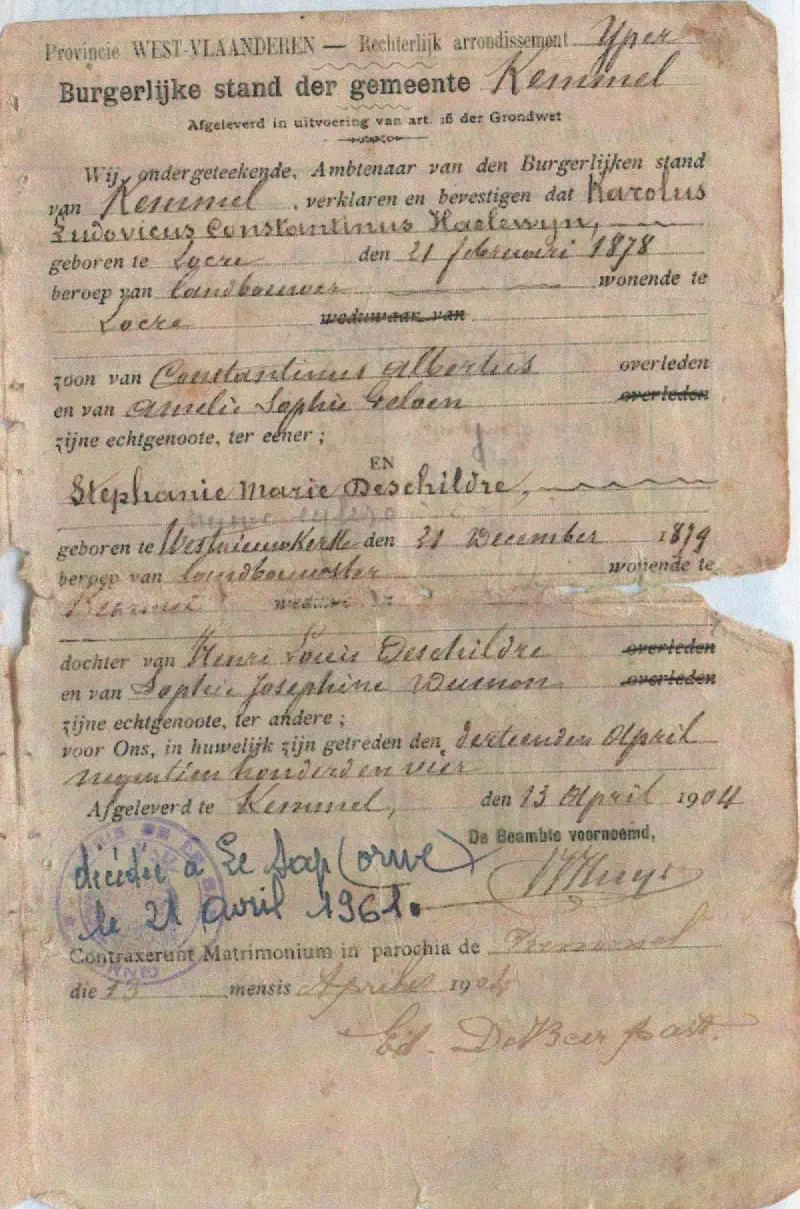 Provincie WEST-VLAANDEREN — Rechterlijk arrondissement Yper
Burgerlijke stand der gemeente Kemmel
Afgeleverd in uitvoering van art. 16 der Grondwet
Wij, ondergeteekende, Ambtenaar van den Burgerlijken stand
van Kemmel, verklaren en bevestigen dat Karolus
Ludovicus Constantinus Haelewyn,
geboren te Locre den 21 februari 1878
beroep van landbouwer wonende te
Locre weduwaar van
zoon van Constantinus Albertus overleden
en van Amelie Sophie Geloen overleden
zijne echtgenoote, ter eener ;
EN
Stephanie Marie Deschildre,
geboren te Westnieuwkerke den 21 December 1879
beroep van landbouwster wonende te
Kemmel
dochter van Henri Louis Deschildre overleden
en van Sophie Josephine overleden
zijne echtgenoote, ter andere ;
voor Ons, in huwelijk zijn getreden den dertienden April
negentien honderd en vier
Afgeleverd te Kemmel, den 13 April 1904
De Beambte voornoemd,
décédée à Le Sap (orne)
le 21 avril 1961.
Contraxerunt Matrimonium in parochia de Kemmel
die 13 mensis Aprilis 1904
Ed. De Beer past.